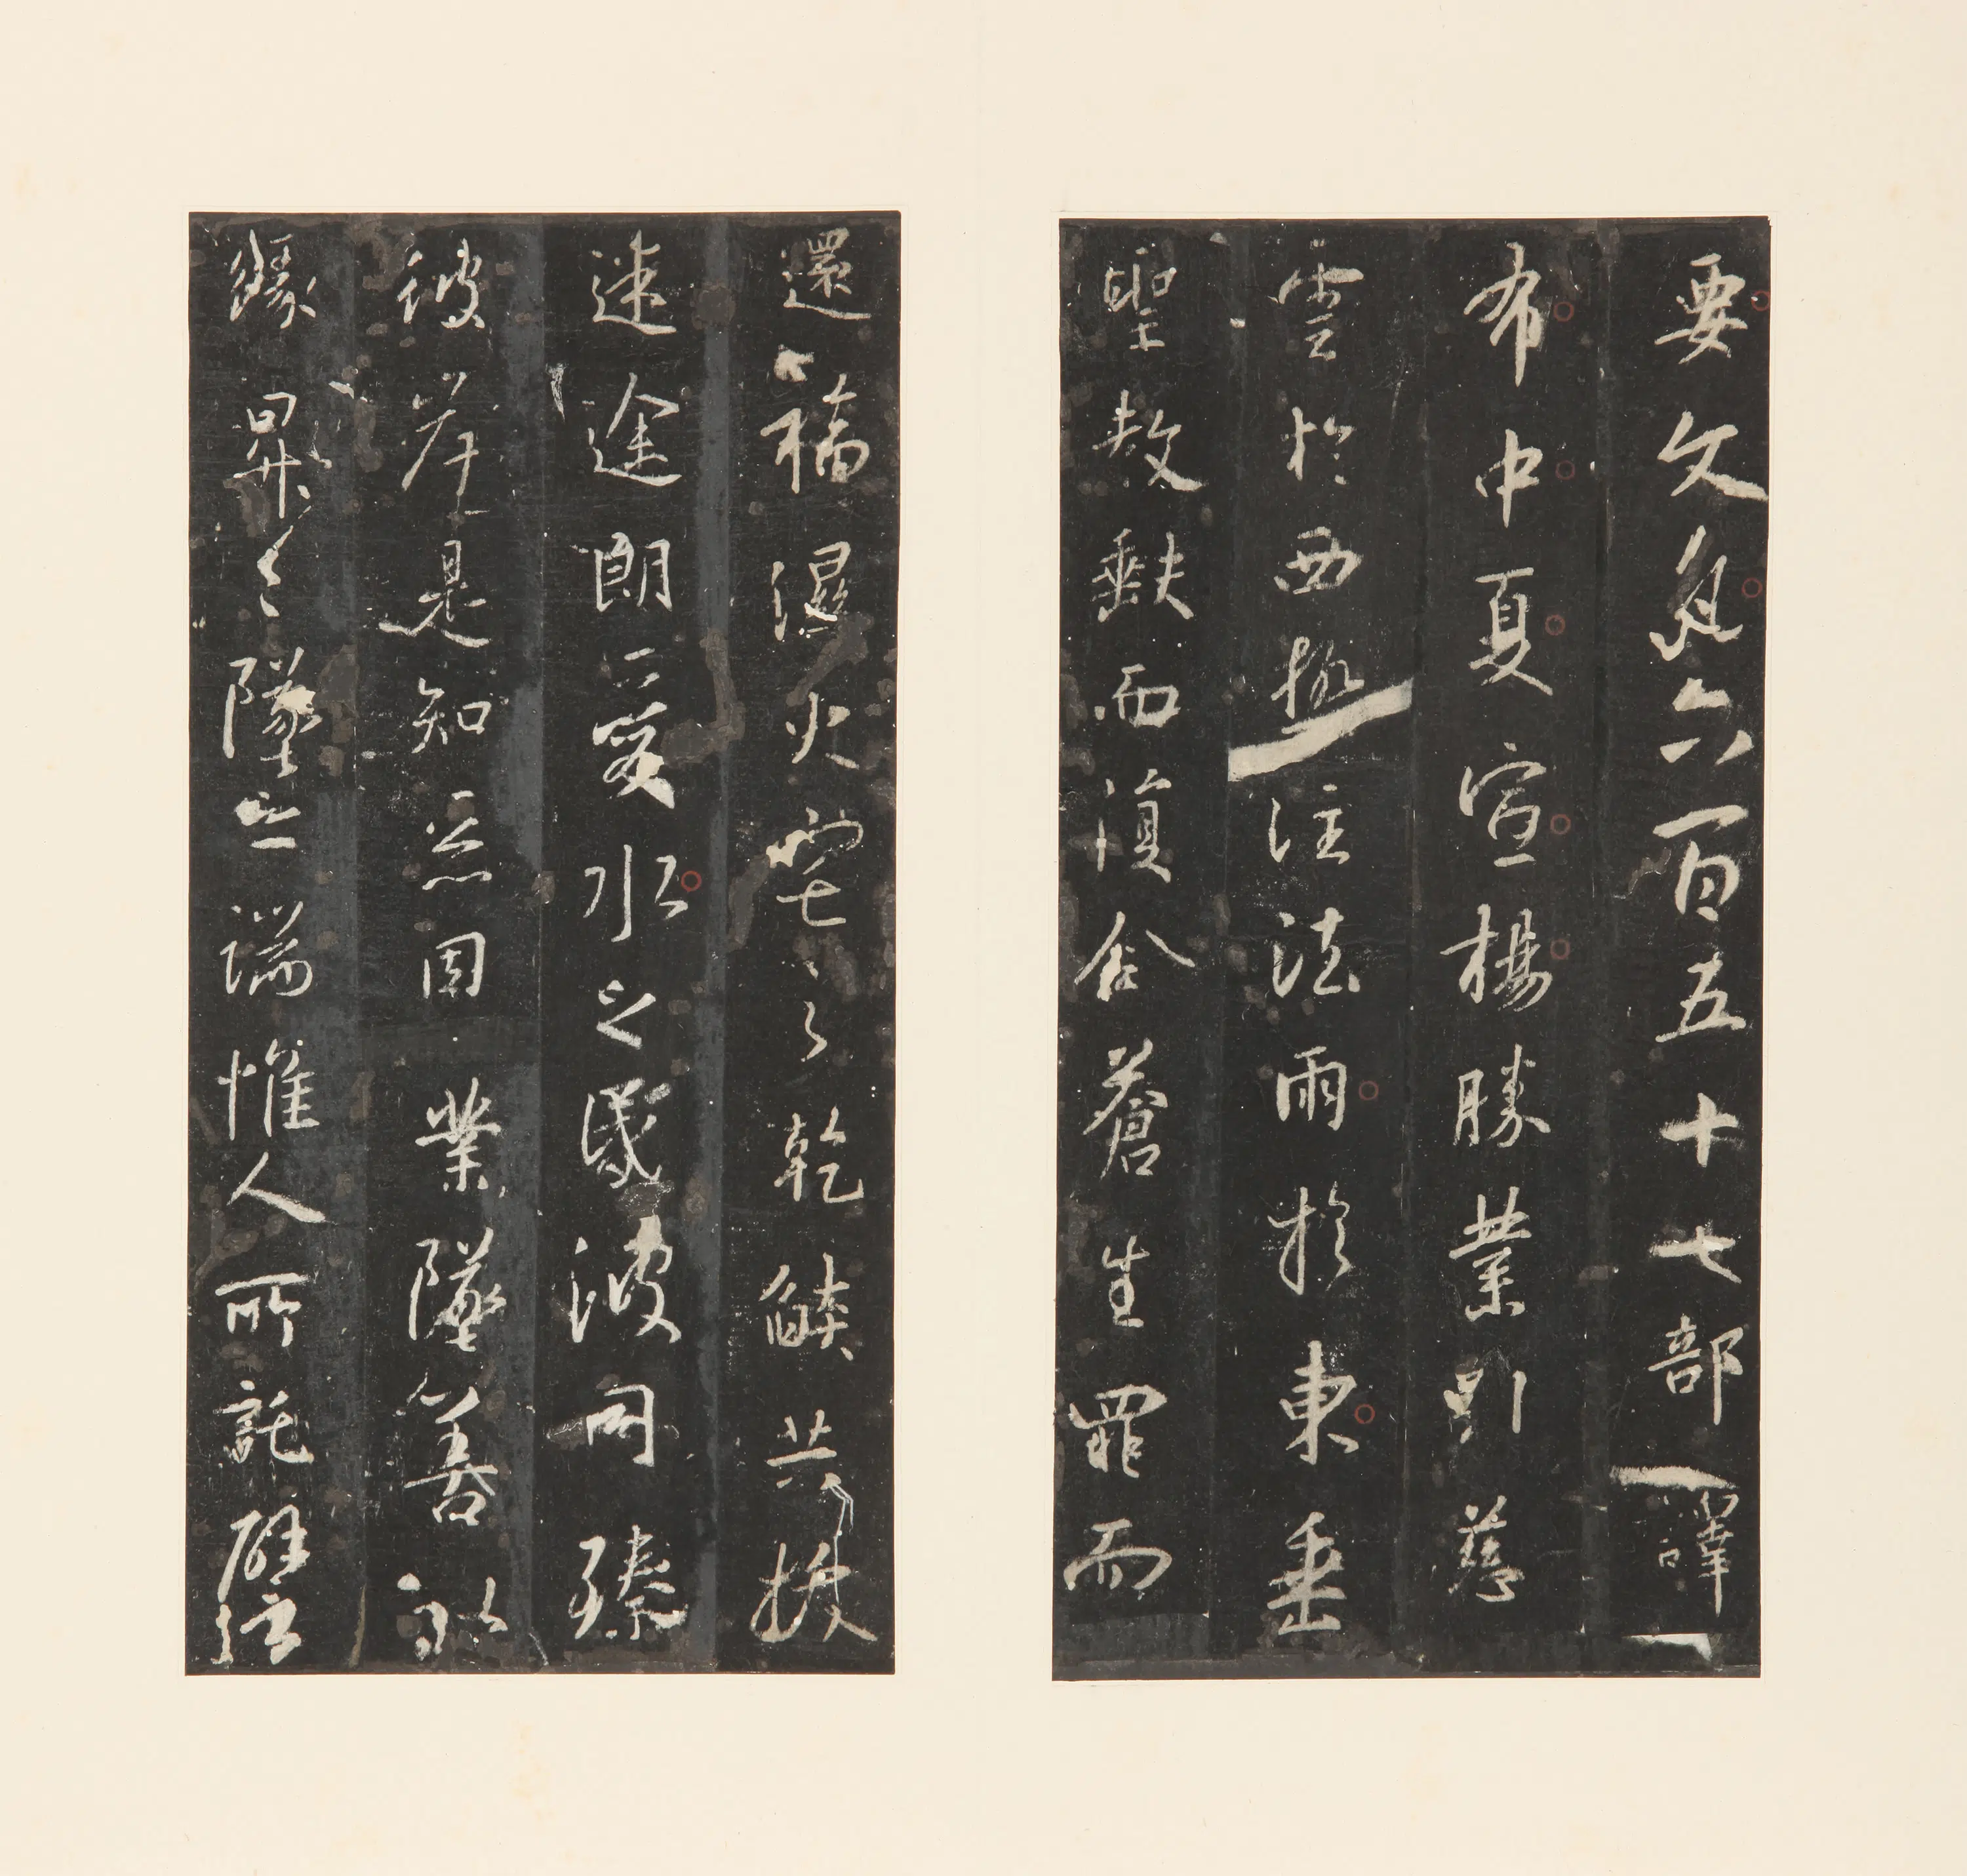 要文凡六百五十七部譯
布中夏宣揚勝業引慈
雲於西極注法雨於東垂
聖教缺而復全蒼生罪而
還福濕火宅之乾燄共拔
迷途朗愛水之昏波同臻
彼岸是知惡因業墜善以
緣昇昇墜之端惟人所託譬